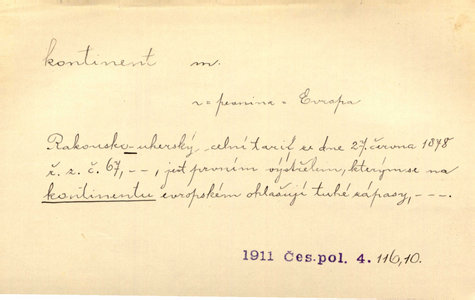 kontinent m.
= pevnina = Evropa
Rakousko-uherský celní tarif ze dne 27. června 1878
ř. z. č. 67, - -, jest prvním výstřelem, kterým se na
kontinentu evropském ohlašují tuhé zápasy, - - -.
1911 Čes.pol. 4. 116,10.